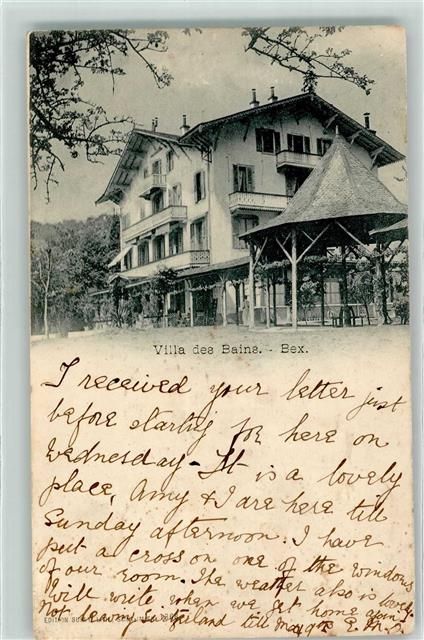 Villa des Bains. - Bex.
I received your letter just
before starting for here on
Wednesday - It is a lovely
place, Amy & I are here till
Sunday afternoon. I have
put a cross on one of the windows
of our room. The weather also is lovely.
Will write when we get home again
Not leaving till May
EDITION